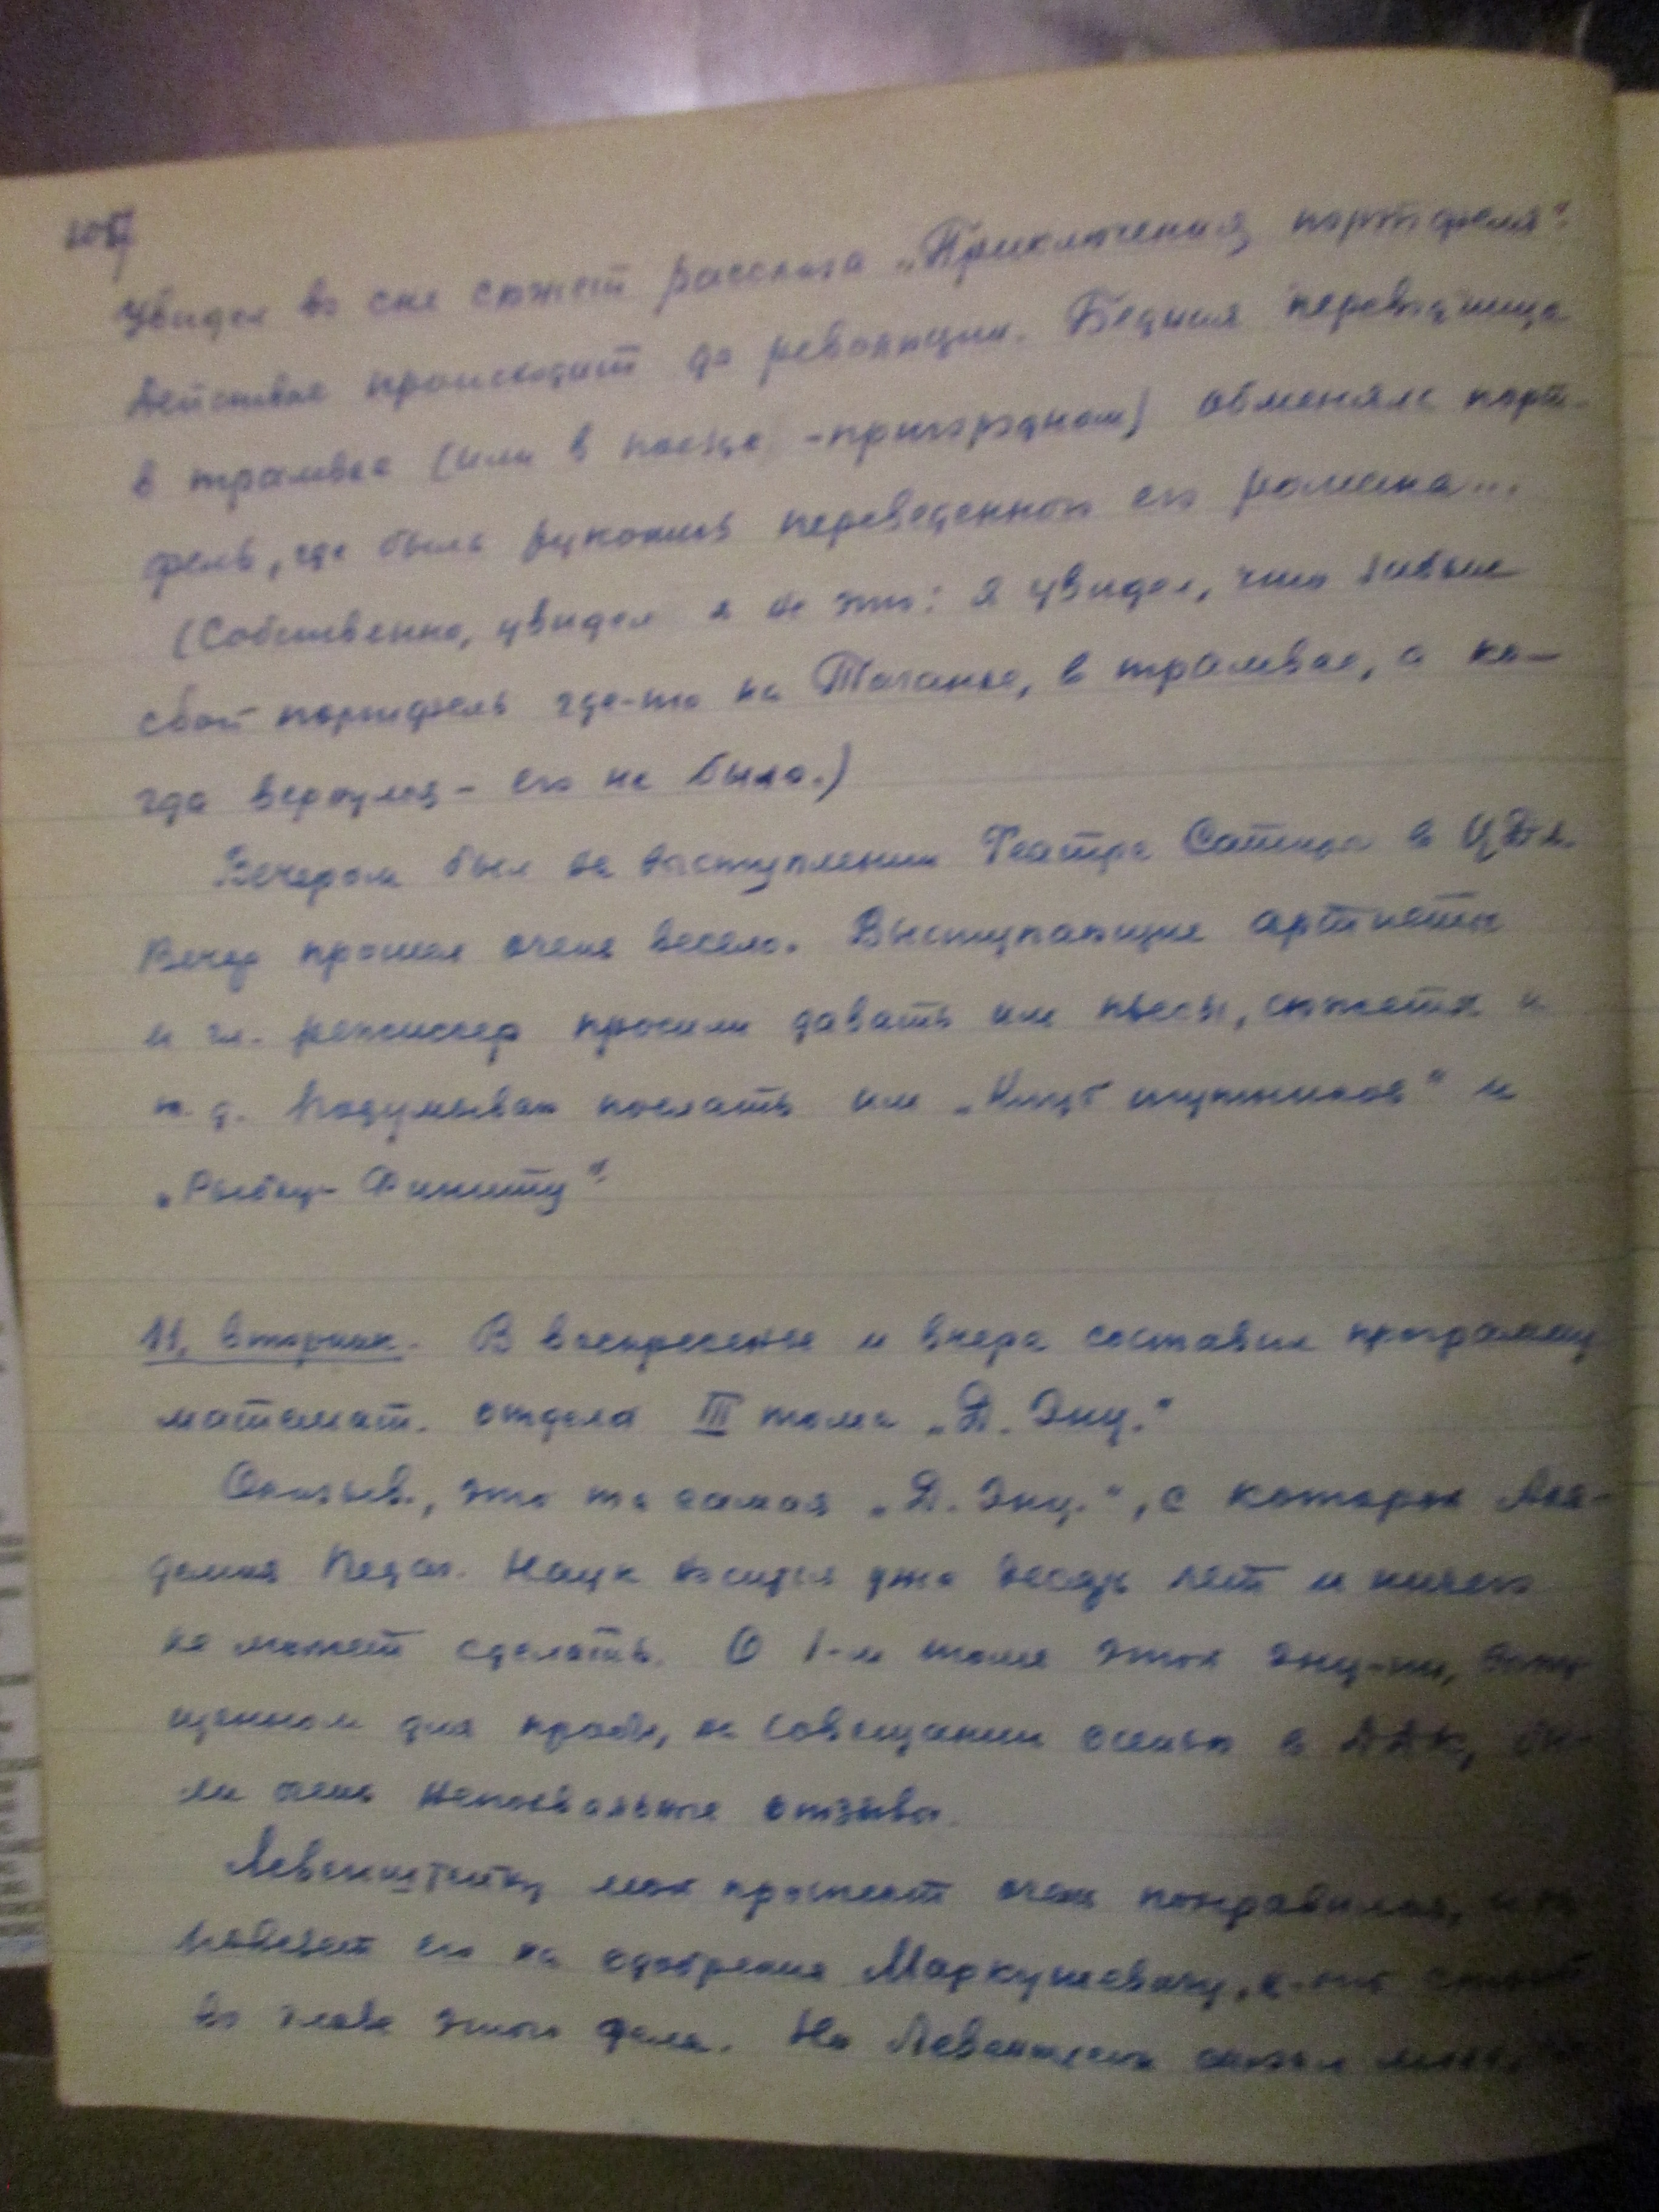 Увидел во сне сюжет рассказа „Приключения портфеля".
Действие происходит до революции. Бедная переводчица
в трамвае (или в поезде - пригородном) обменяла порт-
фель, где была рукопись переведенного ею романа...
(Собственно, увидел я не это: я увидел, что забыл
свой портфель где-то на Таганке, в трамвае, а ко-
гда вернулся - его не было.)
Вечером был на выступлении Театра Сатиры в ЦДЛ.
Вечер прошел очень весело. Выступающие артисты
и гл. режиссер просили давать им пьесы, сюжеты и
т. д. Подумываю послать им „Клуб шутников" и
„Рыбку-Финиту".
11, вторник. В воскресенье и вчера составил программу
математ. отдела III тома „Д. Энц."
Оказыв., это та самая „Д. Энц.", с которой Ака-
демия Педаг. Наук возится уже десять лет и ничего
не может сделать. О 1-м томе этой Энц-ии,
щенном для пробы, на совещании осенью в ДДК, бы-
ли очень непохвальные отзывы.
Левенштейну мой проспект очень понравился, и он
повезет его на одобрение Маркушевичу, к-рый стоит
во главе этого дела. Но Левенштейн сказал мне,